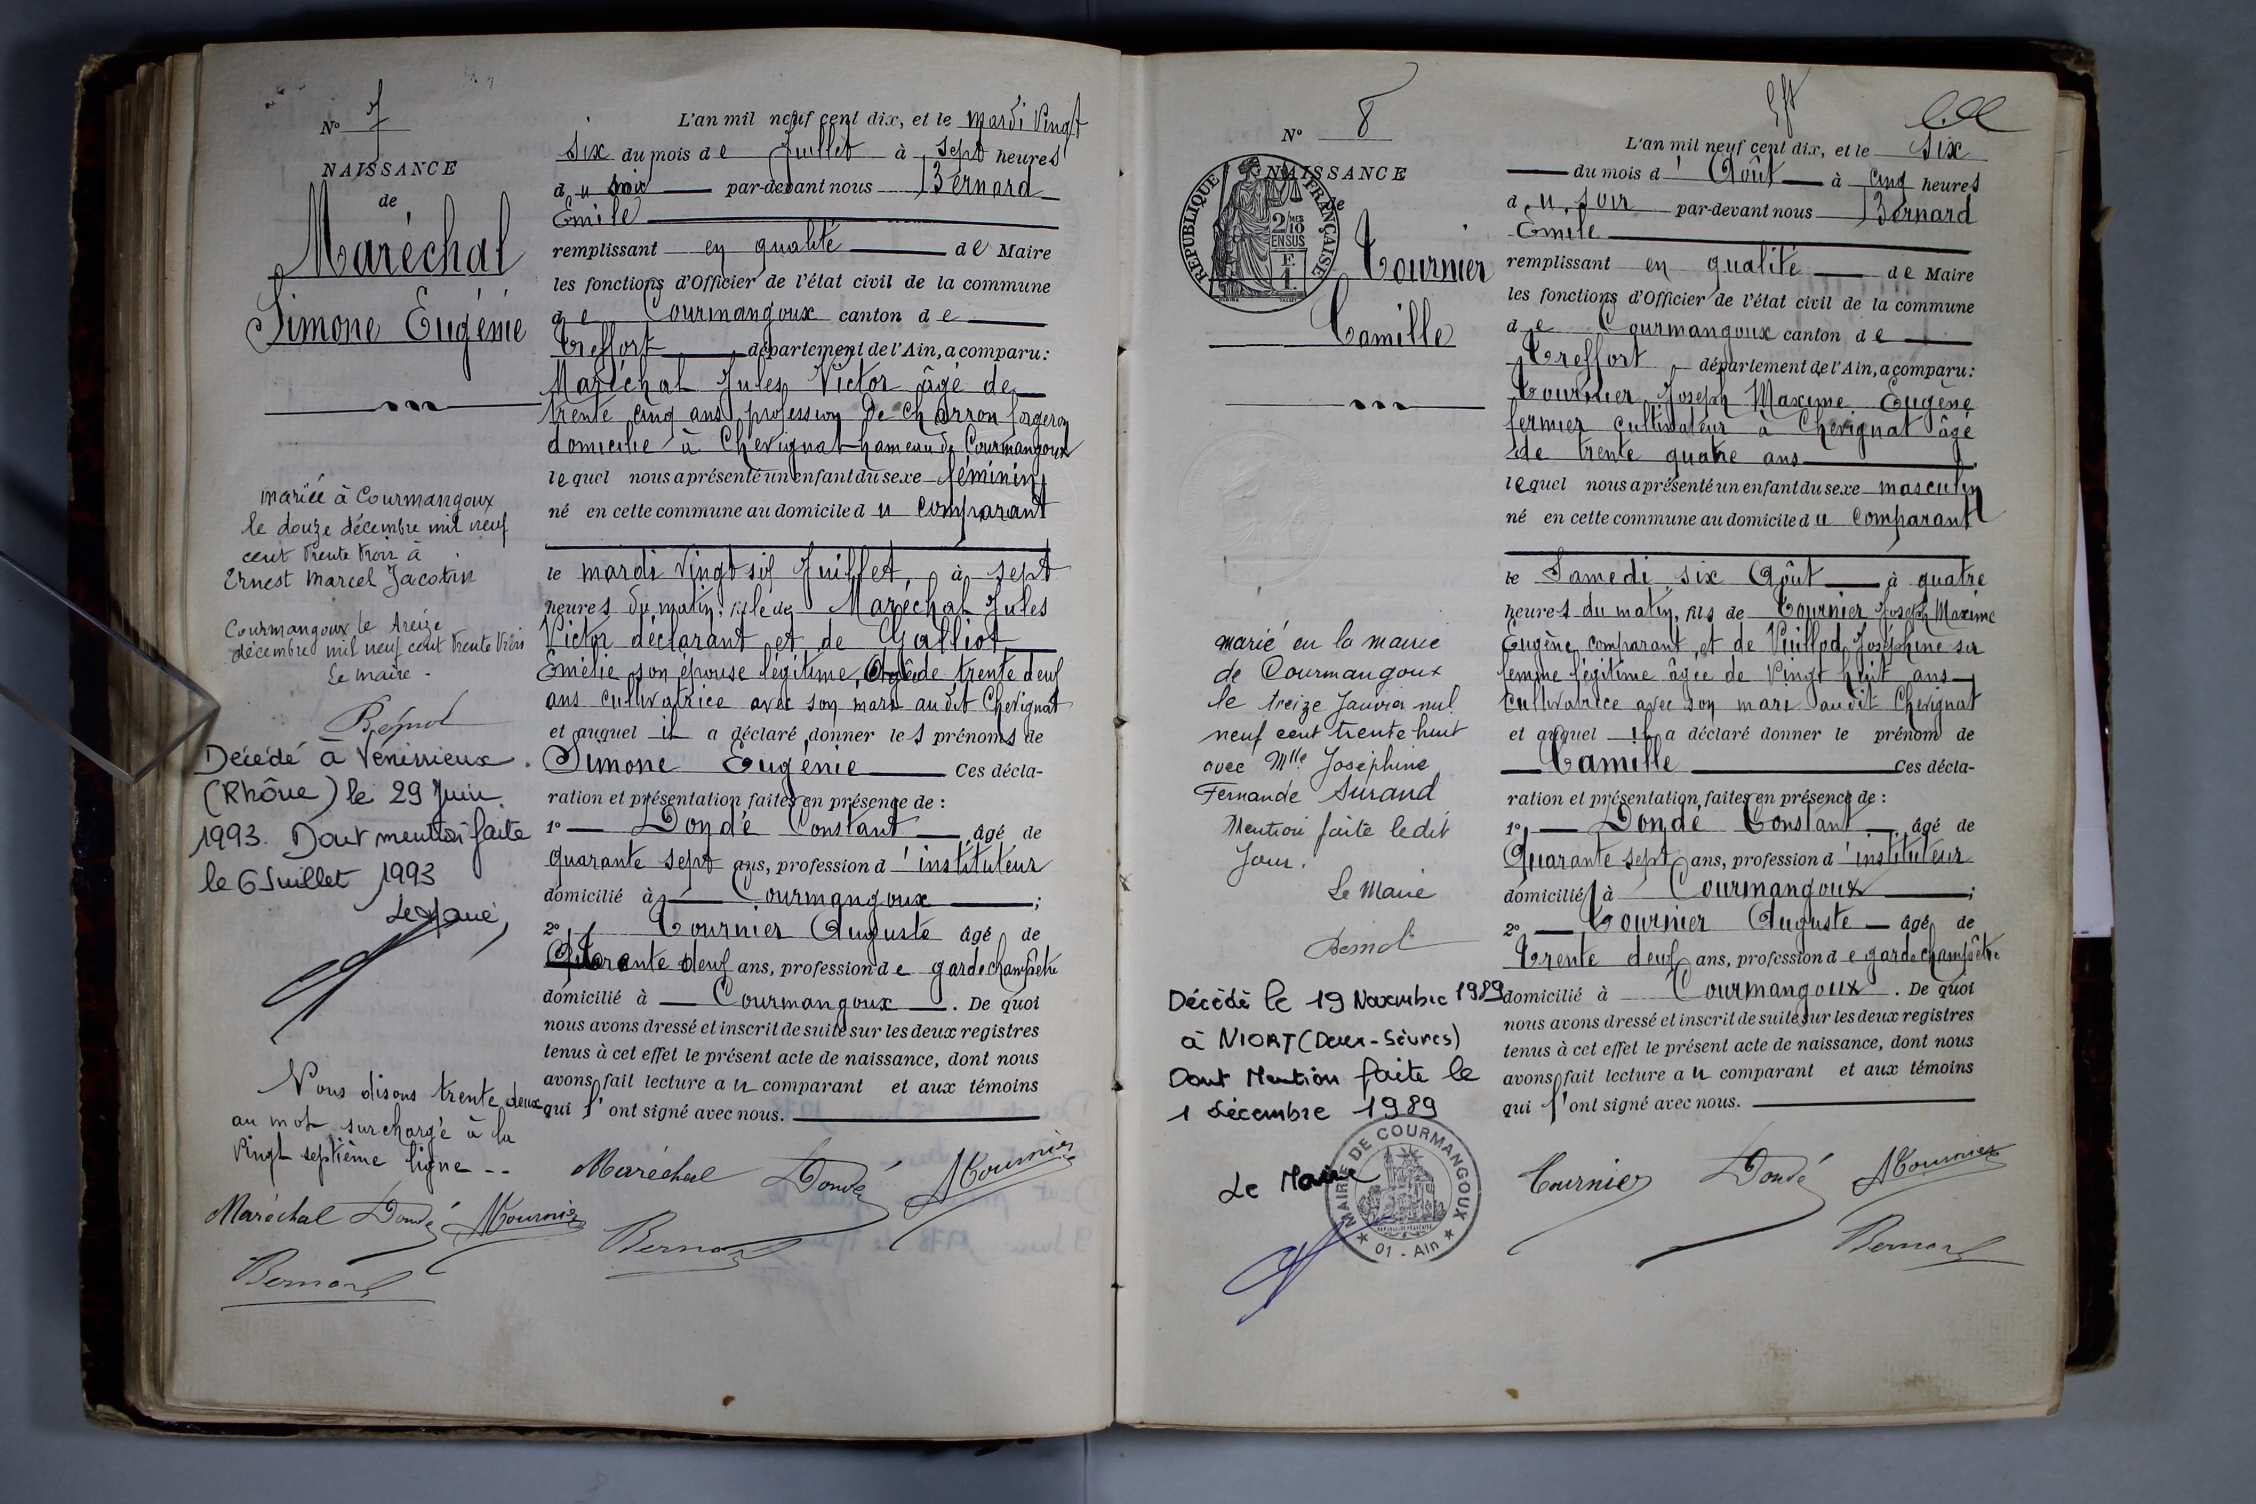 N° 7
NAISSANCE
de
Maréchal
Simone Eugénie
mariée à Courmangoux
le douze décembre mil neuf
cent trente trois à
Ernest Marcel Jacotin
Courmangoux le treize
décembre mil neuf cent trente trois
Le maire.
Décédé à Vénissieux
(Rhône) le 29 Juin
1993. Dont mention faite
le 6 Juillet 1993
Le Maire,
Nous disons trente deux
au mot surchargé à la
vingt septième ligne --
Maréchal Dondé ATournier
Bernard
L'an mil neuf cent dix, et le mardi vingt
six du mois de Juillet à sept heures
du soir par-devant nous Bernard
Emile
remplissant en qualité de Maire
les fonctions d'Officier de l'état civil de la commune
de Courmangoux canton de
Treffort département de l'Ain, a comparu:
Maréchal Jules Victor âgé de
trente cinq ans profession de charron forgeron
domicilié à Chevignat hameau de Courmangoux
lequel nous a présenté un enfant du sexe féminin
né en cette commune au domicile du comparant
le mardi vingt six Juillet, à sept
heures du matin, fille de Maréchal Jules
Victor déclarant et de Galliot
Emélie son épouse légitime, âgée de trente deux
ans cultivatrice avec son mari audit Chevignat
et auquel il a déclaré donner les prénoms de
Simone Eugénie Ces décla-
ration et présentation faites en présence de :
1° Dondé Constant âgé de
quarante sept ans, profession d'instituteur
domicilié à Courmangoux ;
2° Tournier Auguste âgé de
trente deux ans, profession de garde champêtre
domicilié à Courmangoux. De quoi
nous avons dressé et inscrit de suite sur les deux registres
tenus à cet effet le présent acte de naissance, dont nous
avons fait lecture au comparant et aux témoins
qui l'ont signé avec nous.
Maréchal Dondé ATournier
Bernard
N° 8
NAISSANCE
de
RÉPUBLIQUE FRANÇAISE
2/10 EN SUS
F.
1.
Tournier
Camille
marié en la mairie
de Courmangoux
le treize Janvier mil
neuf cent trente huit
avec Mlle Joséphine
Fernande Surand
Mention faite ledit
Jour.
Le Maire
Décédé le 19 Novembre 1989
à NIORT (Deux-Sèvres)
Dont Mention faite le
1 décembre 1989
Le Maire
MAIRIE DE COURMANGOUX
★ 01 - Ain ★
L'an mil neuf cent dix, et le six
du mois d'Août à cinq heures
du soir par-devant nous Bernard
Emile
remplissant en qualité de Maire
les fonctions d'Officier de l'état civil de la commune
de Courmangoux canton de
Treffort département de l'Ain, a comparu:
Tournier Joseph Maxime Eugène
fermier cultivateur à Chevignat âgé
de trente quatre ans
lequel nous a présenté un enfant du sexe masculin
né en cette commune au domicile du comparant
le Samedi six Août à quatre
heures du matin, fils de Tournier Joseph Maxime
Eugène comparant, et de Vuillod Joséphine sa
femme légitime âgée de vingt huit ans
cultivatrice avec son mari audit Chevignat
et auquel il a déclaré donner le prénom de
Camille Ces décla-
ration et présentation faites en présence de :
1° Dondé Constant âgé de
Quarante sept ans, profession d'instituteur
domicilié à Courmangoux ;
2° Tournier Auguste âgé de
trente deux ans, profession de garde champêtre
domicilié à Courmangoux. De quoi
nous avons dressé et inscrit de suite sur les deux registres
tenus à cet effet le présent acte de naissance, dont nous
avons fait lecture au comparant et aux témoins
qui l'ont signé avec nous.
Tournier Dondé ATournier
Bernard